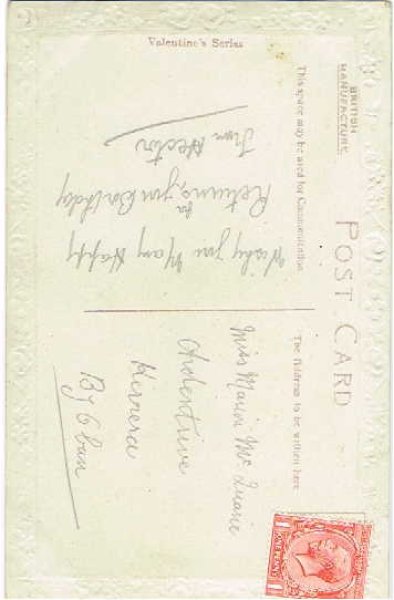 Valentine's Series
BRITISH
MANUFACTURE
POST CARD
This space may be used for Communication
The Address to be written here
Wishing you Many Happy
Returns on
your Birthday
from Hector
Miss Marion Mc
Ardentrive
Kerrera
By Oban